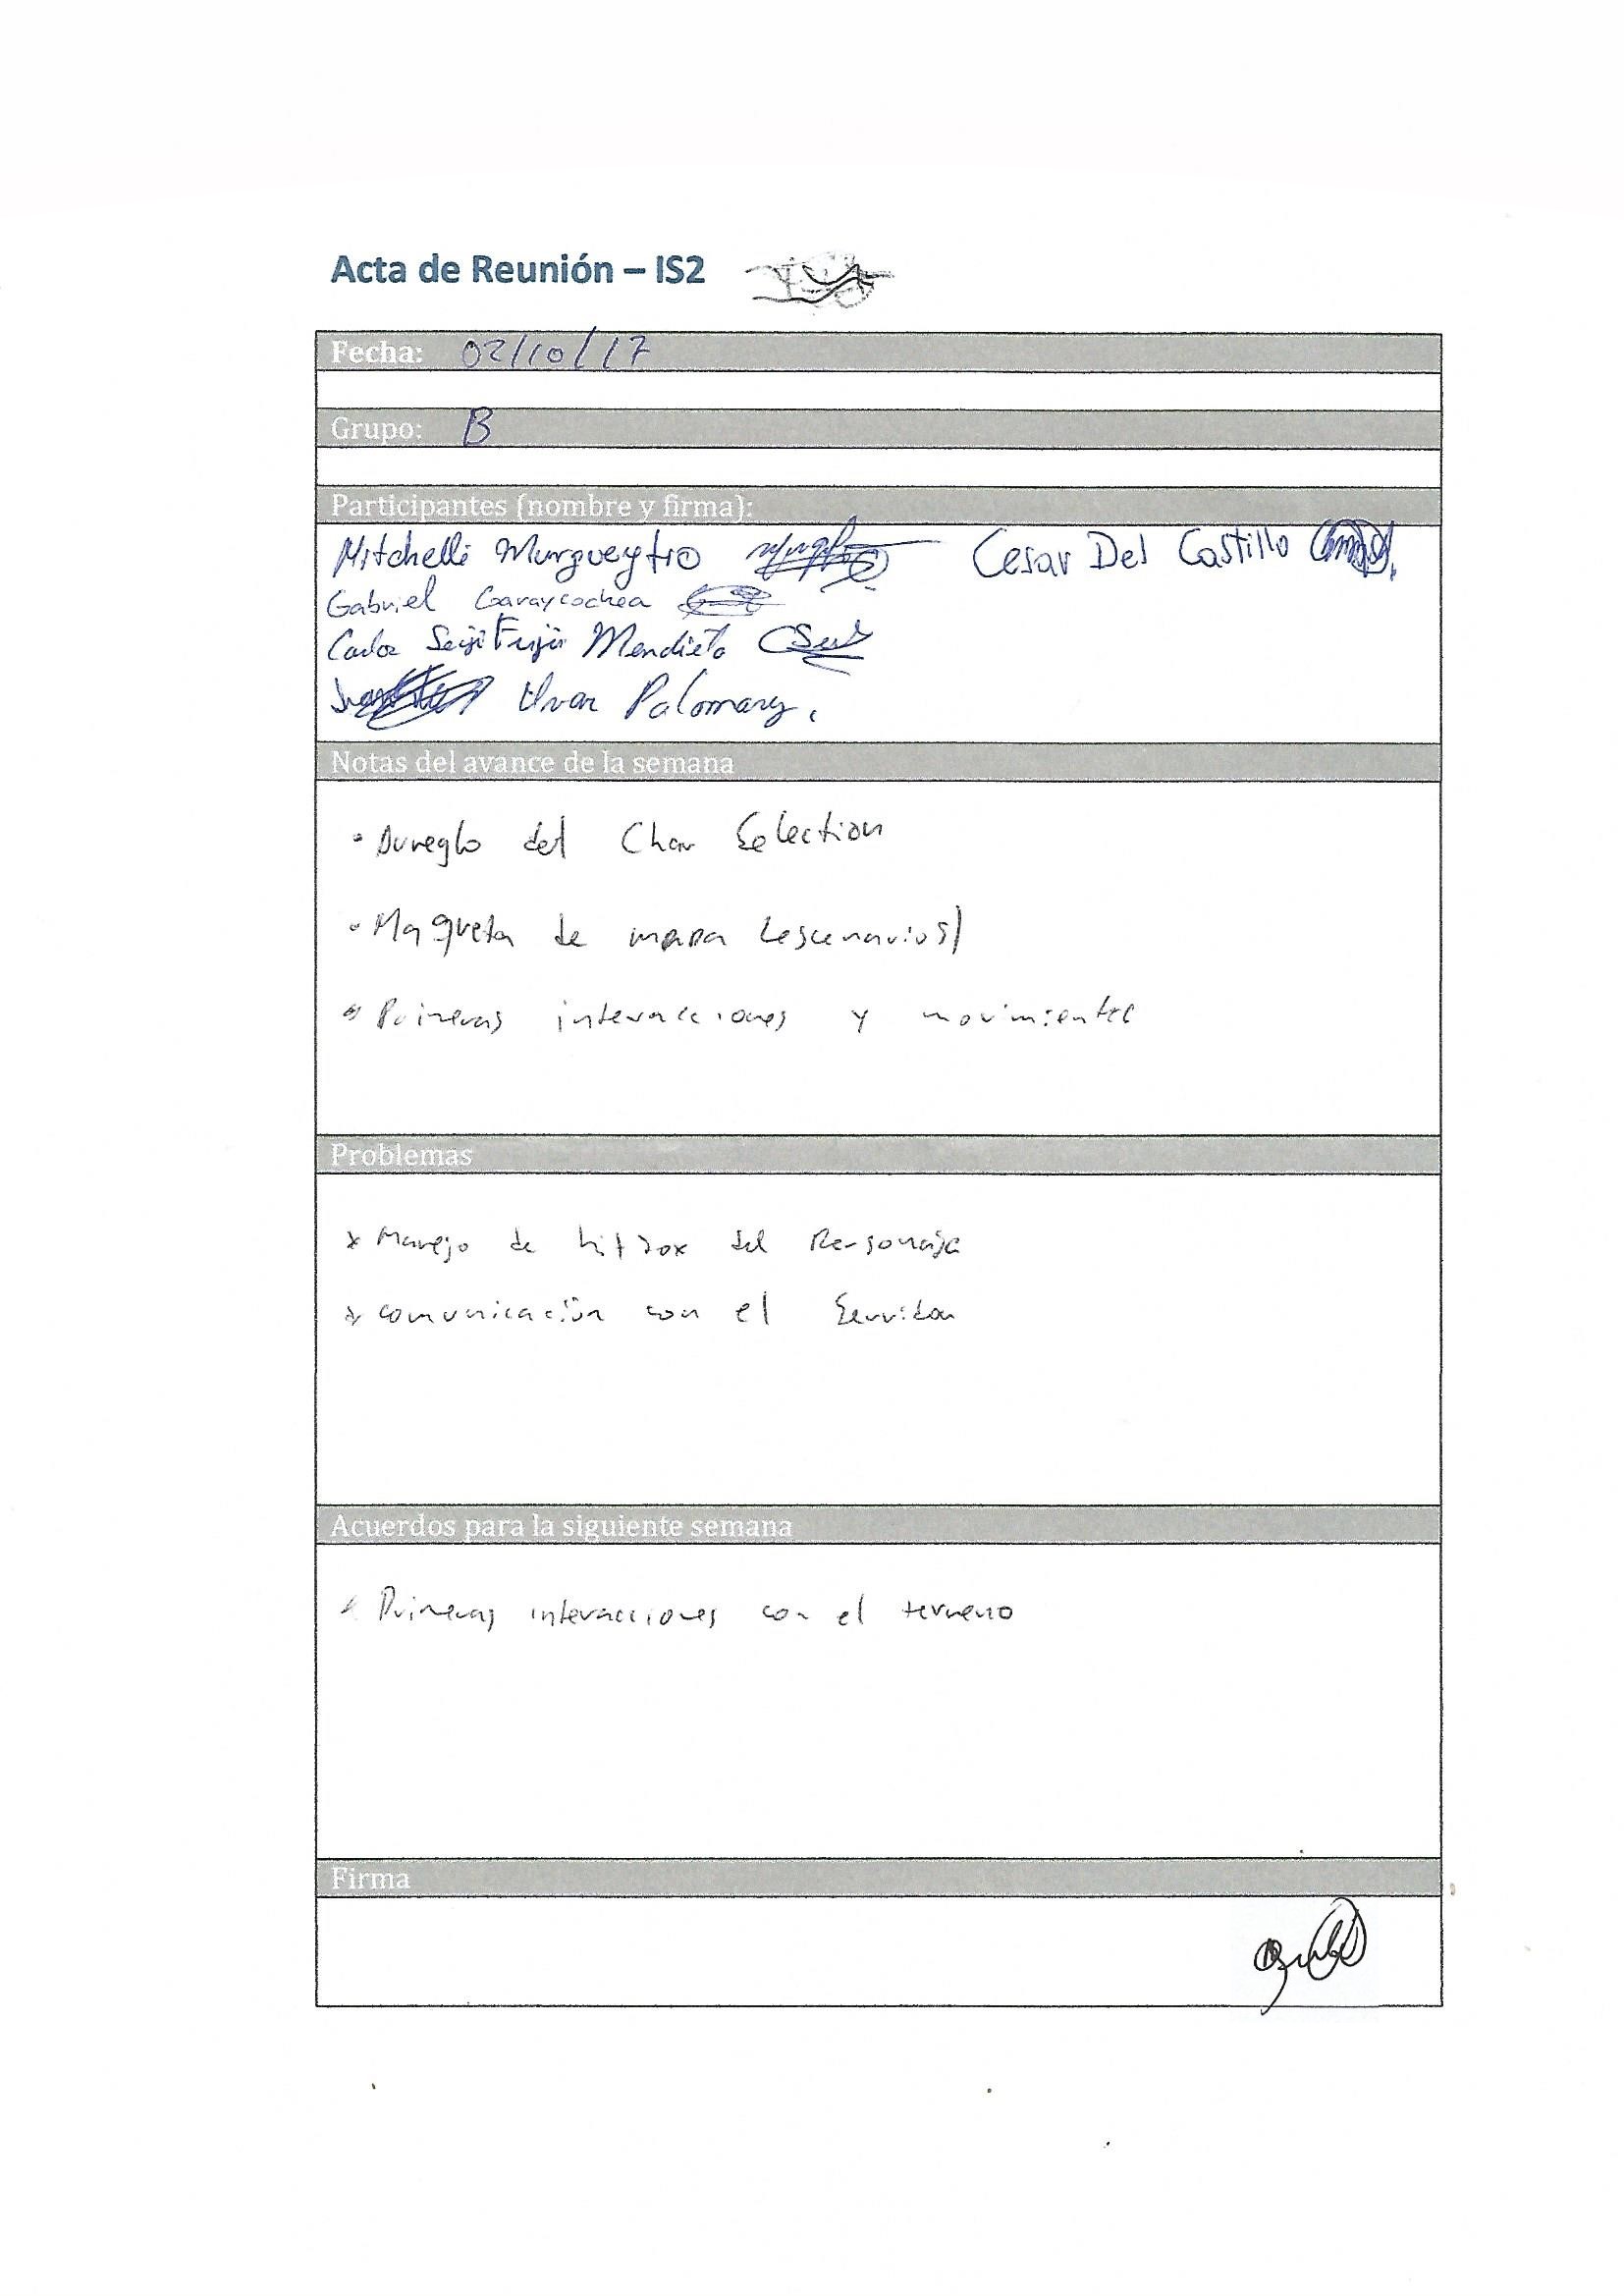 Acta de Reunión – IS2
Fecha: 02/10/17
Grupo: B
Participantes (nombre y firma):
Mitchelli Murgueytio Cesar Del Castillo
Gabriel Garaycochea
Carlos Seiji Fujii Mendieta
Palomares.
Notas del avance de la semana
• Arreglo del Char Selection
• Maqueta de mapa (escenarios)
• Primeras interacciones y movimientos
Problemas
* Manejo de hitbox del Personaje
* comunicación con el Servidor
Acuerdos para la siguiente semana
* Primeras interacciones con el terreno
Firma